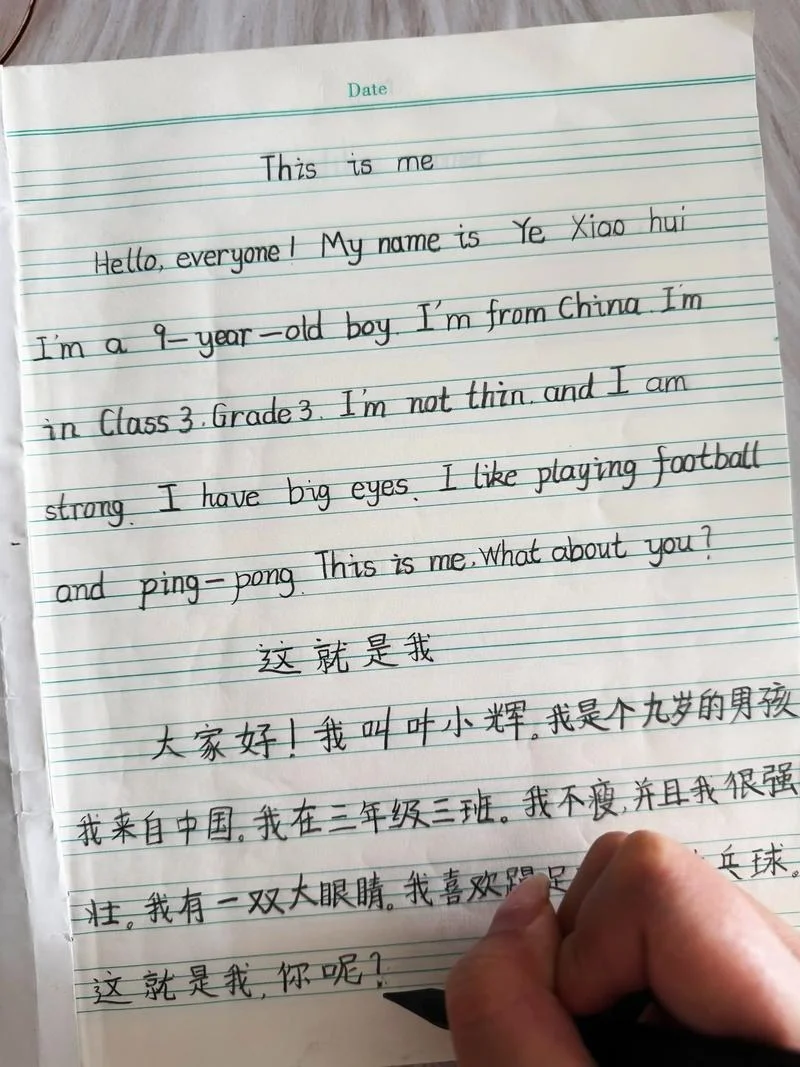 Date
This is me
Hello, everyone! My name is Ye Xiao hui
I'm a 9-year-old boy. I'm from China. I'm
in Class 3. Grade 3. I'm not thin. and I am
strong. I have big eyes. I like playing football
and ping-pong. This is me. What about you?
这就是我
大家好!我叫叶小辉。我是个九岁的男孩
我来自中国。我在三年级三班。我不瘦,并且我很强
壮。我有一双大眼睛。我喜欢踢足 兵球。
这就是我,你呢?